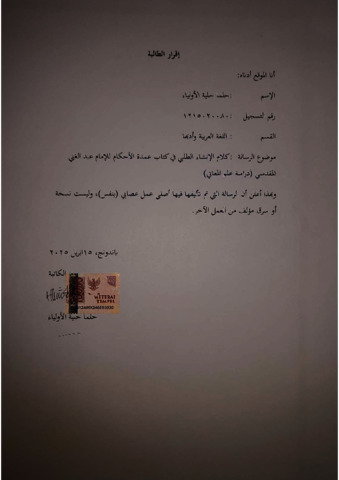 إقرار الطالبة
أنا الموقع أدناه:
الإسم : حلمه حلية الأولياء
رقم لتسجيل : ١٢١٥٠٢٠٠٨٠
القسم : اللغة العربية وأدبها
موضوع الرسالة : كلام الإنشاء الطلبي في كتاب عمدة الأحكام للإمام عبد الغني
المقدسي (دراسة علم المعاني)
وبهذا أعلن أن لرسالة التي تم تأليفها فيها أصلي عمل عصابي (بنفس)، وليست نسخة
أو سرق مؤلف من العمل الآخر.
باندونج، ١٥ أبريل ٢٠٢٥
الكاتبة
METERAI
TEMPEL
حلما حلية الأولياء